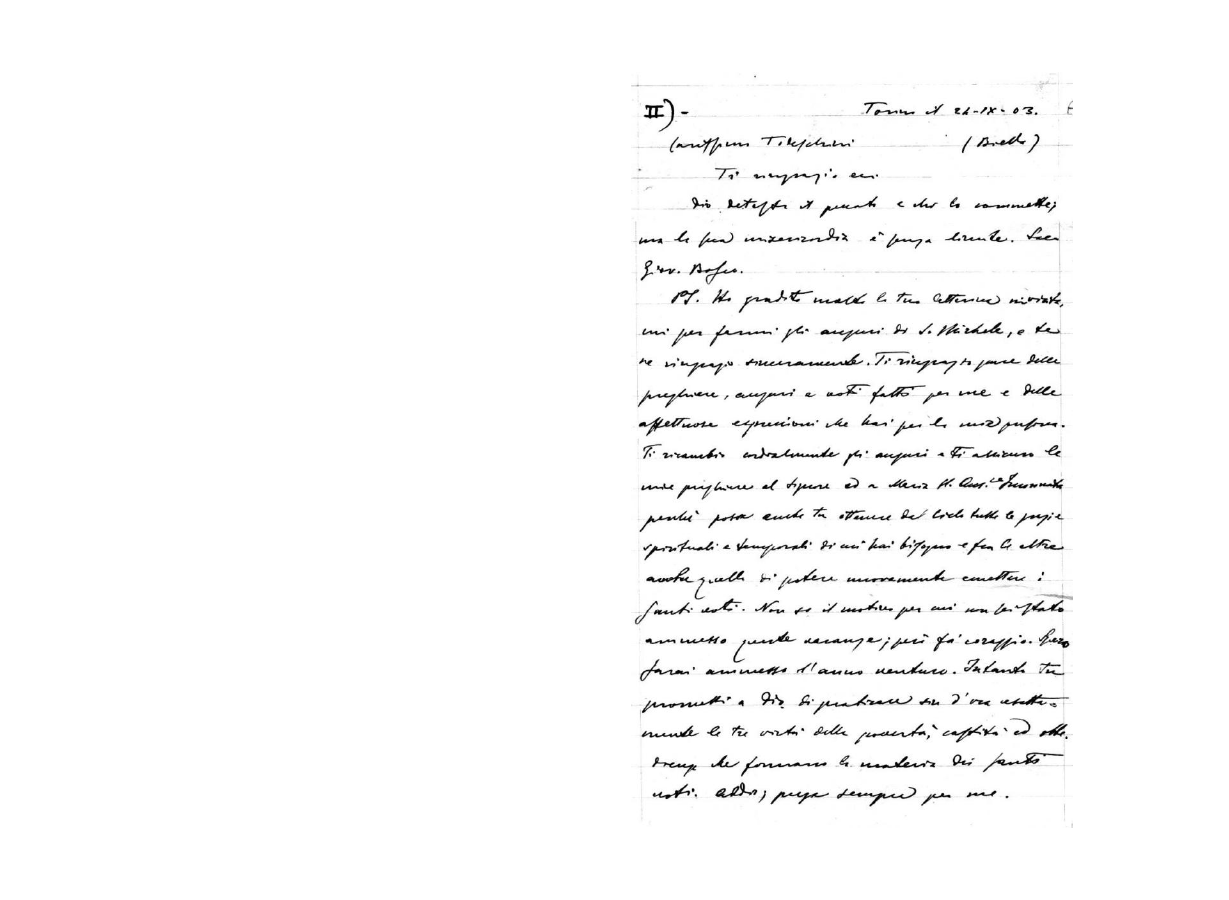 II) - Torino il 24-IX-03.
Carissimo (Biella)
Ti ringrazio
Dio detesta il peccato e chi lo commette;
ma la sua misericordia è senza limite. Sac.
Giov. Bosco.
PS. Ho gradito molto la tua letterina inviata-
mi per farmi gli auguri di S. Michele, e te
ne ringrazio sinceramente. Ti ringrazio pure delle
preghiere, auguri e voti fatti per me e delle
affettuose espressioni che hai per la mia persona.
Ti ricambio cordialmente gli auguri e ti assicuro le
mie preghiere al Signore ed a Maria SS. Aus.ce Immacolata
perché possa anche tu ottenere dal Cielo tutte le grazie
spirituali e temporali di cui hai bisogno e fra le altre
anche quella di potere nuovamente emettere i
santi voti. Non so il motivo per cui non sei stato
ammesso vacanze; però fa' coraggio. Spero
sarai ammesso l'anno venturo. Intanto tu
prometti a Dio di praticare sin d'ora esatta=
mente le tre virtù della povertà, castità ed obbe-
dienza che formano la materia dei santi
voti. Addio; prega sempre per me.